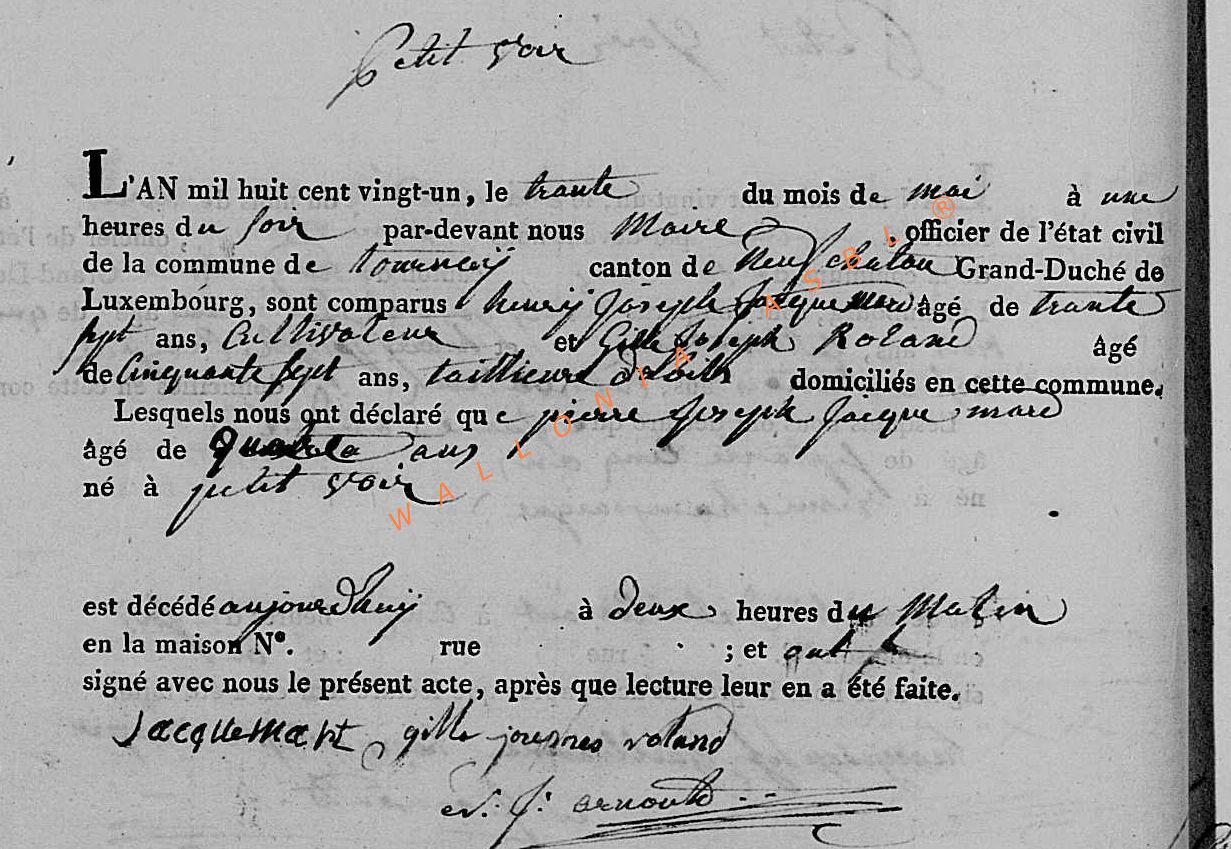 Petit Voir
L'AN mil huit cent vingt-un, le trante du mois de mai à une
heures du soir par-devant nous Maire officier de l'état civil
de la commune de tournay canton de Neufchatau Grand-Duché de
Luxembourg, sont comparus henry Joseph Jacquemard âgé de trante
sept ans, Cultivateur et Gille Joseph Roland âgé
de Cinquante sept ans, domiciliés en cette commune.
Lesquels nous ont déclaré que pierre Joseph Jacquemard
âgé de ans
né à petit voir
est décédé aujourdhuy à deux heures du Matin
en la maison N°. rue ; et ont
signé avec nous le présent acte, après que lecture leur en a été faite.
Jacquemart gille roland
arnould
WALLONIA ASBL ®